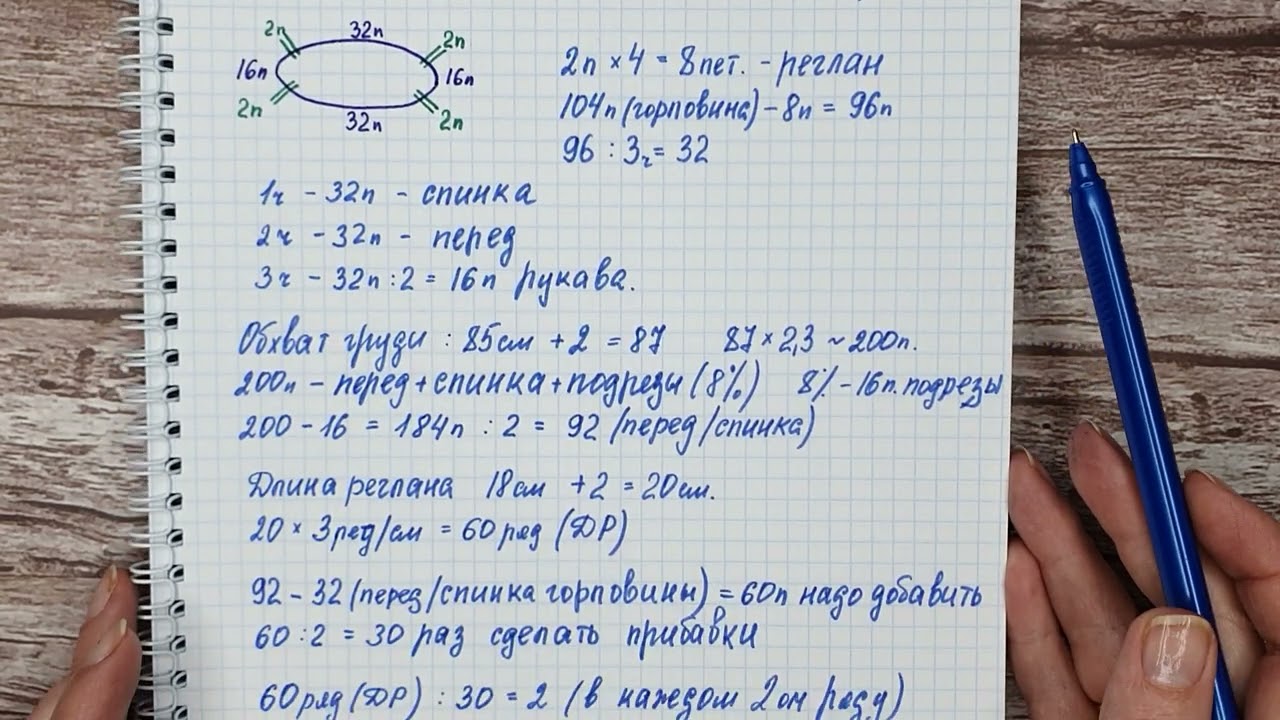 2п 32п 2п
16п 16п
2п 32п 2п
2п × 4 = 8пет. - реглан
104п (горловина) - 8п = 96п
96 : 3ч = 32
1ч - 32п - спинка
2ч - 32п - перед
3ч - 32п : 2 = 16п рукава.
Обхват груди : 85см + 2 = 87 87 × 2,3 ~ 200п.
200п - перед + спинка + подрезы (8%) 8% - 16п. подрезы
200 - 16 = 184п : 2 = 92 (перед/спинка)
Длина реглана 18см + 2 = 20см.
20 × 3ряд/см = 60 ряд (ДР)
92 - 32 (перед/спинка горловины) = 60п надо добавить
60 : 2 = 30 раз сделать прибавки
60 ряд (ДР) : 30 = 2 (в каждом 2ом ряду)